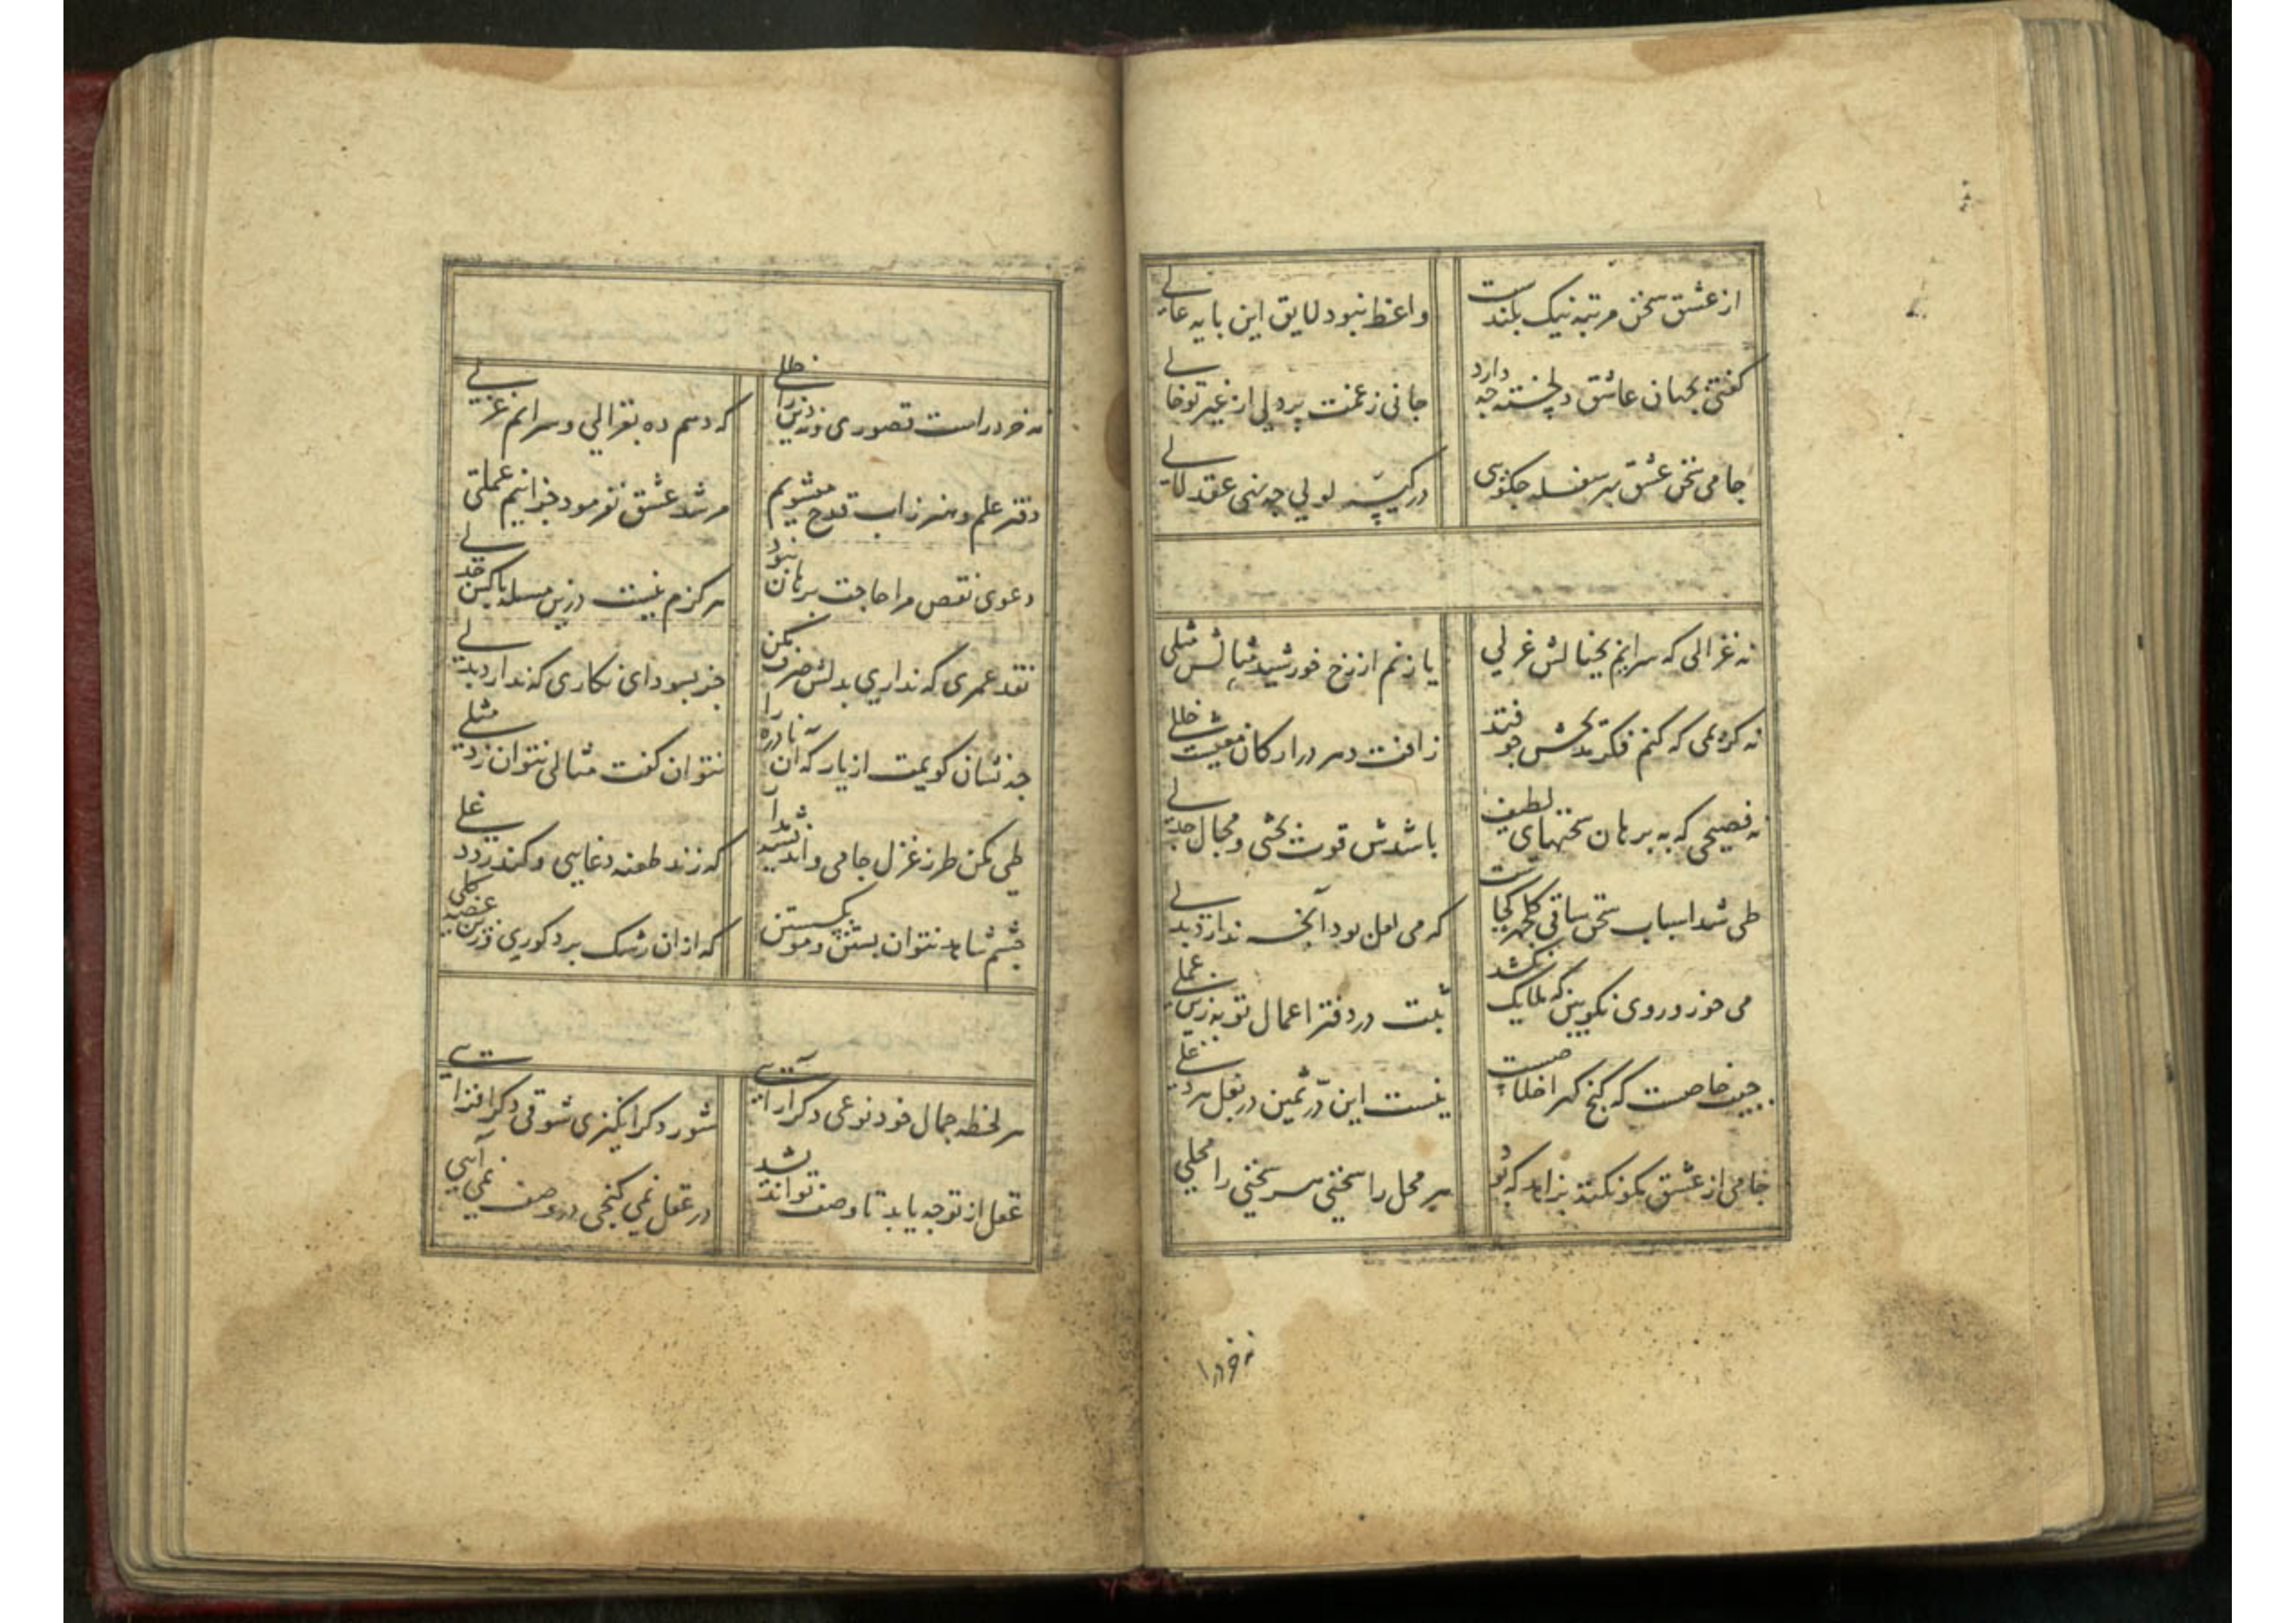 از عشق سخن مرتبه نیک بلندست واعظ نبود لایق این پایه عالی
گفتی بجهان عاشق دلخسته چه دارد جانی ز غمت پر دلی از غیر تو خالی
جامی سخن عشق بهر سفله چگویی در کیسه لولی چه نهی عقد لآلی
نه غزالی که سرایم بخیالش غزلی یا زنم از رخ خورشید مثالش مثلی
نه کریمی که کنم فکر مدیحش چو فتد ز آفت دهر در ارکان معیشت خللی
نه فصیحی که به برهان سخنهای لطیف باشدش قوت بحثی و مجال جدلی
طی شد اسباب سخن ساقی گلچهره کجاست که می لعل بود آنچه ندارد بدلی
می خور و روی نکو بین که ملایک نکشد ثبت در دفتر اعمال تو به زین عملی
جیب خاصست که گنج گهر اخلاصست نیست این در ثمین در بغل هر دغلی
جامی از عشق بگو نکته بزاهد که بود هر محل را سخنی هر سخنی را محلی
نه خرد راست قصوری و نه دین را خللی که دهم ده بغزالی و سرایم غزلی
دفتر علم و هنر ز آب قدح میشویم مرشد عشق نفرمود جز اینم عملی
دعوی نقص مرا حاجت برهان نبود هرگزم نیست درین مسله با کس جدلی
نقد عمری که نداری بدلش صرف مکن جز بسودای نگاری که ندارد بدلی
چه نشان گویمت از یار که آن نادره را نتوان گفت مثالی نتوان زد مثلی
طی مکن طرز غزل جامی و اندیشه مدار که زند طعنه دغایی و کند رد دغلی
چشم شاهد نتوان بستن و مو بگسستن که از آن رشک برد کوری و زین غصه کلی
هر لحظه جمال خود نوعی دگر آرایی شور دگر انگیزی شوقی دگر افزایی
عقل از تو چه یابد تا وصف تو اندیشد در عقل نمی گنجی در وصف نمی آیی
نه خرد را